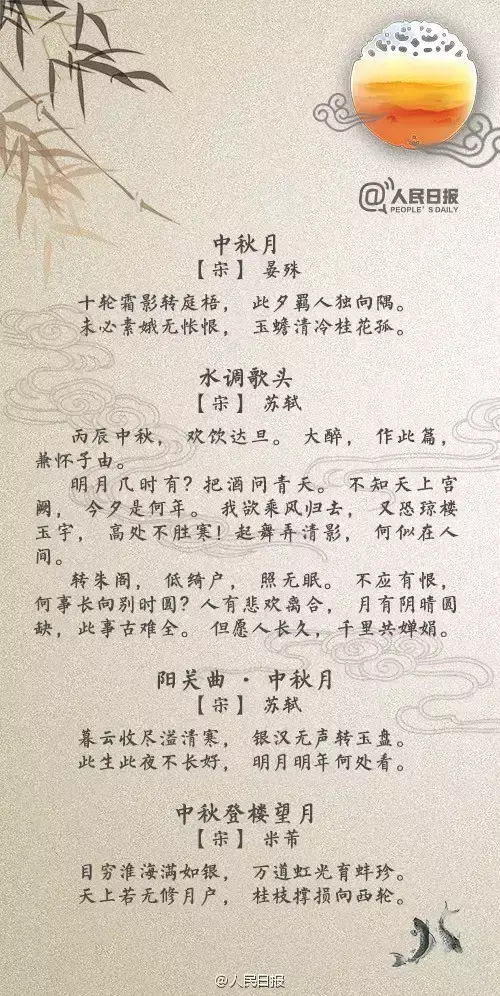 @人民日报
PEOPLE'S DAILY
中秋月
【宋】 晏殊
十轮霜影转庭梧， 此夕羁人独向隅。
未必素娥无怅恨， 玉蟾清冷桂花孤。
水调歌头
【宋】 苏轼
丙辰中秋， 欢饮达旦。 大醉， 作此篇，
兼怀子由。
明月几时有？把酒问青天。 不知天上宫
阙， 今夕是何年。 我欲乘风归去， 又恐琼楼
玉宇， 高处不胜寒！起舞弄清影， 何似在人
间。
转朱阁， 低绮户， 照无眠。 不应有恨，
何事长向别时圆？人有悲欢离合， 月有阴晴圆
缺，此事古难全。 但愿人长久，千里共婵娟。
阳关曲 · 中秋月
【宋】 苏轼
暮云收尽溢清寒， 银汉无声转玉盘。
此生此夜不长好， 明月明年何处看。
中秋登楼望月
【宋】 米芾
目穷淮海满如银， 万道虹光育蚌珍。
天上若无修月户， 桂枝撑损向西轮。
@人民日报